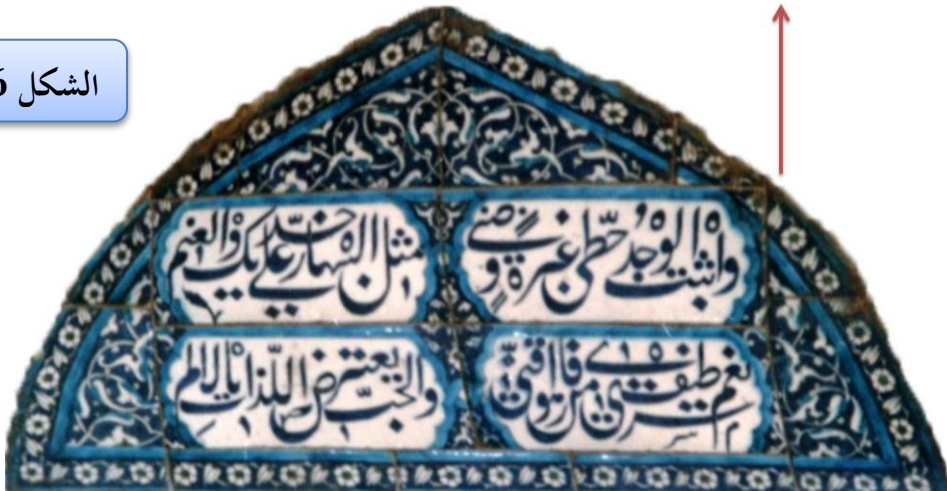 الشكل 6
واثبت الوجد خطي عبرة وضنى
مثل البهار على خديك والعنم
نعم سرى طيف من اهوى فارقني
والحب يعترض اللذات بالالم